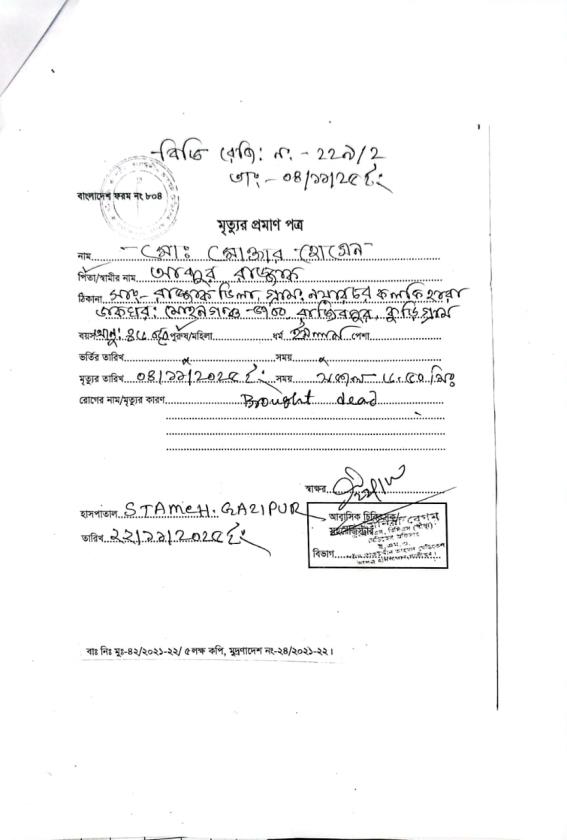 বিডি রেজি: নং - ২২৯/২
তাং - ০৪/১১/২৫ ইং
বাংলাদেশ ফরম নং ৮০৪
মৃত্যুর প্রমাণ পত্র
নাম মোঃ মোক্তার হোসেন
পিতা/স্বামীর নাম আব্দুর রাজ্জাক
ঠিকানা সাং- রাজ্জাক ভিলা, গ্রাম: নয়ারচর
ডাকঘর: মোহনগঞ্জ রাজিবপুর, কুড়িগ্রাম
বয়স পুরুষ/মহিলা ধর্ম ইসলাম পেশা
ভর্তির তারিখ x সময় x
মৃত্যুর তারিখ ০৪/১১/২০২৫ ইং সময় সকাল মিঃ
রোগের নাম/মৃত্যুর কারণ Brought dead
স্বাক্ষর
হাসপাতাল STAMCH. GAZIPUR
তারিখ ২২/১১/২০২৫ ইং
আবাসিক চিকিৎসক/
বিভাগ
বাঃ নিঃ মুঃ-৪২/২০২১-২২/ ৫ লক্ষ কপি, মুদ্রণাদেশ নং-২৪/২০২১-২২।